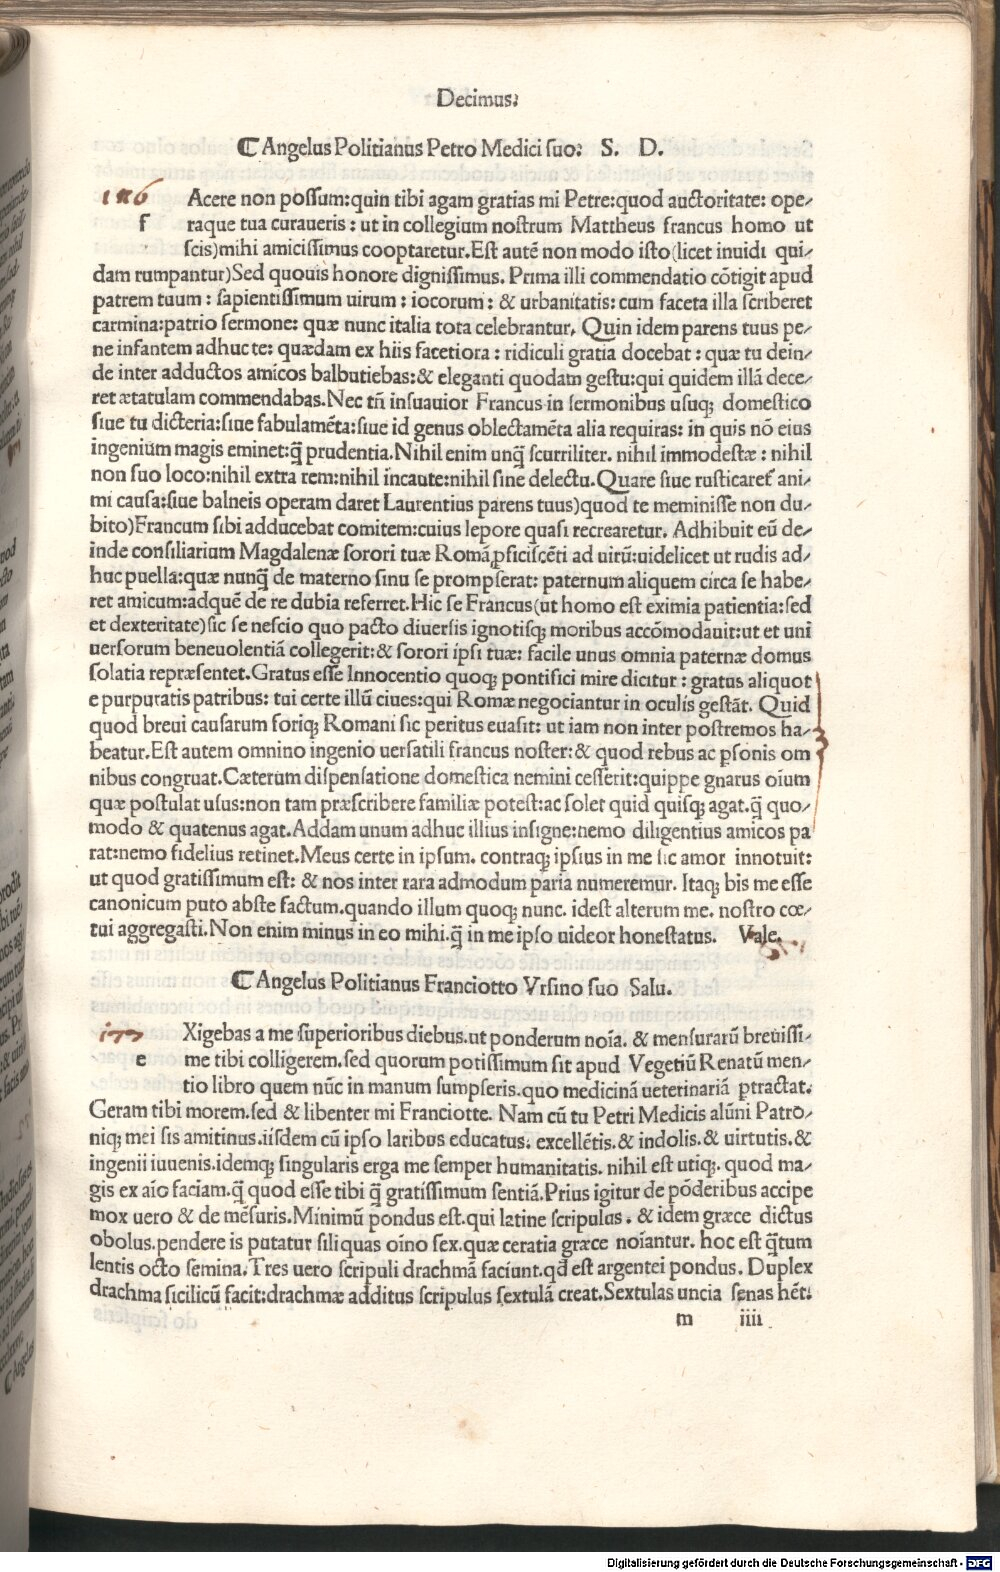 Decimus:
⸿ Angelus Politianus Petro Medici suo: S. D.
Acere non possum:quin tibi agam gratias mi Petre:quod auctoritate: ope⸗
f raque tua curaueris: ut in collegium nostrum Mattheus francus homo ut
scis)mihi amicissimus cooptaretur.Est autē non modo isto(licet inuidi qui⸗
dam rumpantur)Sed quouis honore dignissimus. Prima illi commendatio cōtigit apud
patrem tuum: sapientissimum uirum: iocorum: & urbanitatis: cum faceta illa scriberet
carmina:patrio sermone: quæ nunc italia tota celebrantur. Quin idem parens tuus pe⸗
ne infantem adhuc te: quædam ex hiis facetiora: ridiculi gratia docebat: quæ tu dein⸗
de inter adductos amicos balbutiebas:& eleganti quodam gestu:qui quidem illā dece⸗
ret ætatulam commendabas.Nec tn̄ insuauior Francus in sermonibus usuq; domestico
siue tu dicteria:siue fabulamēta:siue id genus oblectamēta alia requiras: in quis nō eius
ingenium magis eminet:q̄ prudentia.Nihil enim unq̄ scurriliter. nihil immodestæ: nihil
non suo loco:nihil extra rem:nihil incaute:nihil sine delectu.Quare siue rusticaret᷑ ani⸗
mi causa:siue balneis operam daret Laurentius parens tuus)quod te meminisse non du⸗
bito)Francum sibi adducebat comitem:cuius lepore quasi recrearetur. Adhibuit eū de⸗
inde consiliarium Magdalenæ sorori tuæ Romā ꝓficiscēti ad uirū:uidelicet ut rudis ad⸗
huc puella:quæ nunq̄ de materno sinu se prompserat: paternum aliquem circa se habe⸗
ret amicum:adquē de re dubia referret.Hic se Francus(ut homo est eximia patientia:sed
et dexteritate)sic se nescio quo pacto diuersis ignotisq; moribus accōmodauit:ut et uni
uersorum beneuolentiā collegerit:& sorori ipsi tuæ: facile unus omnia paternæ domus
solatia repræsentet.Gratus esse Innocentio quoq; pontifici mire dicitur: gratus aliquot
e purpuratis patribus: tui certe illū ciues:qui Romæ negociantur in oculis gestāt. Quid
quod breui causarum foriq; Romani sic peritus euasit: ut iam non inter postremos ha⸗
beatur.Est autem omnino ingenio uersatili francus noster:& quod rebus ac ꝑsonis om
nibus congruat.Cæterum dispensatione domestica nemini cesserit:quippe gnarus oīum
quæ postulat usus:non tam præscribere familiæ potest:ac solet quid quisq; agat.q̄ quo⸗
modo & quatenus agat.Addam unum adhuc illius insigne:nemo diligentius amicos pa
rat:nemo fidelius retinet.Meus certe in ipsum. contraq; ipsius in me sic amor innotuit:
ut quod gratissimum est: & nos inter rara admodum paria numeremur. Itaq; bis me esse
canonicum puto abste factum.quando illum quoq; nunc. idest alterum me. nostro cœ⸗
tui aggregasti.Non enim minus in eo mihi.q̄ in me ipso uideor honestatus. Vale.
⸿ Angelus Politianus Franciotto Vrsino suo Salu.
Xigebas a me superioribus diebus.ut ponderum noīa. & mensurarū breuissi⸗
e me tibi colligerem.sed quorum potissimum sit apud Vegetiū Renatū men⸗
tio libro quem nūc in manum sumpseris.quo medicinā ueterinariā ꝑtractat.
Geram tibi morem.sed & libenter mi Franciotte. Nam cū tu Petri Medicis alūni Patro⸗
niq; mei sis amitinus.iisdem cū ipso laribus educatus. excellētis.& indolis.& uirtutis.&
ingenii iuuenis.idemq; singularis erga me semper humanitatis. nihil est utiq;. quod ma⸗
gis ex aīo faciam.q̄ quod esse tibi q̄ gratissimum sentiā.Prius igitur de pōderibus accipe
mox uero & de mēsuris.Minimū pondus est.qui latine scripulus. & idem græce dictus
obolus.pendere is putatur siliquas oīno sex.quæ ceratia græce noīantur. hoc est q̄tum
lentis octo semina.Tres uero scripuli drachmā faciunt.qd̄ est argentei pondus. Duplex
drachma sicilicū facit:drachmæ additus scripulus sextulā creat.Sextulas uncia senas hēt:
m iiii
Digitalisierung gefördert durch die Deutsche Forschungsgemeinschaft - DFG